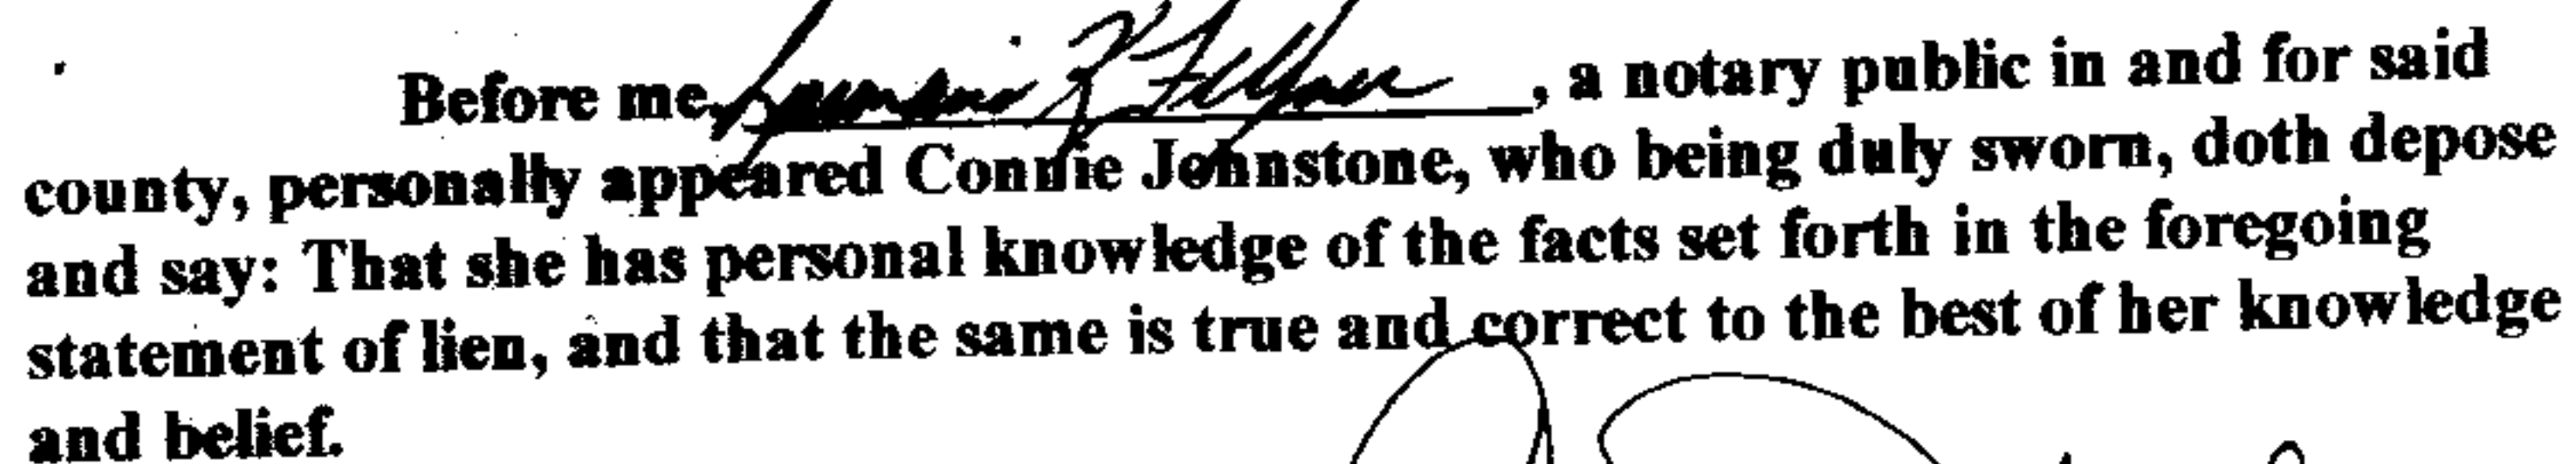 Before me, , a notary public in and for said
county, personally appeared Connie Johnstone, who being duly sworn, doth depose
and say: That she has personal knowledge of the facts set forth in the foregoing
statement of lien, and that the same is true and correct to the best of her knowledge
and belief.